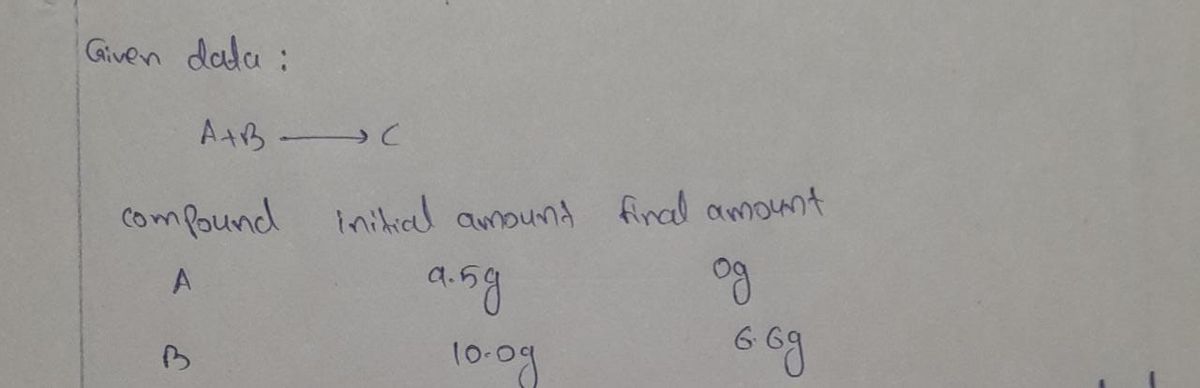 Given data :
A+B ⟶ C
compound initial amount final amount
A 9.5g 0g
B 10.0g 6.6g